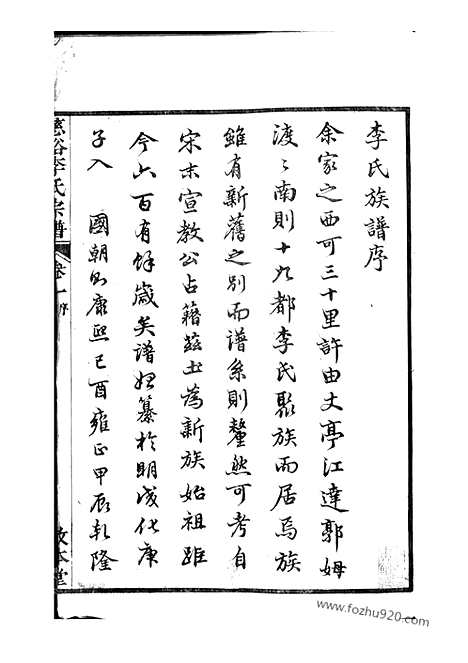 李氏族譜序
余家之西可三十里許由丈亭江達郭姆
渡〻南則十九都李氏聚族而居焉族
雖有新舊之別而譜系則釐然可考自
宋末宣教公占藉茲土為新族始祖距
今六百有餘歲矣譜始纂於明成化庚
子入　國朝以康熙己酉雍正甲辰乾隆
慈谿李氏宗譜
卷一
序
敦本堂
www.fozhu920.com